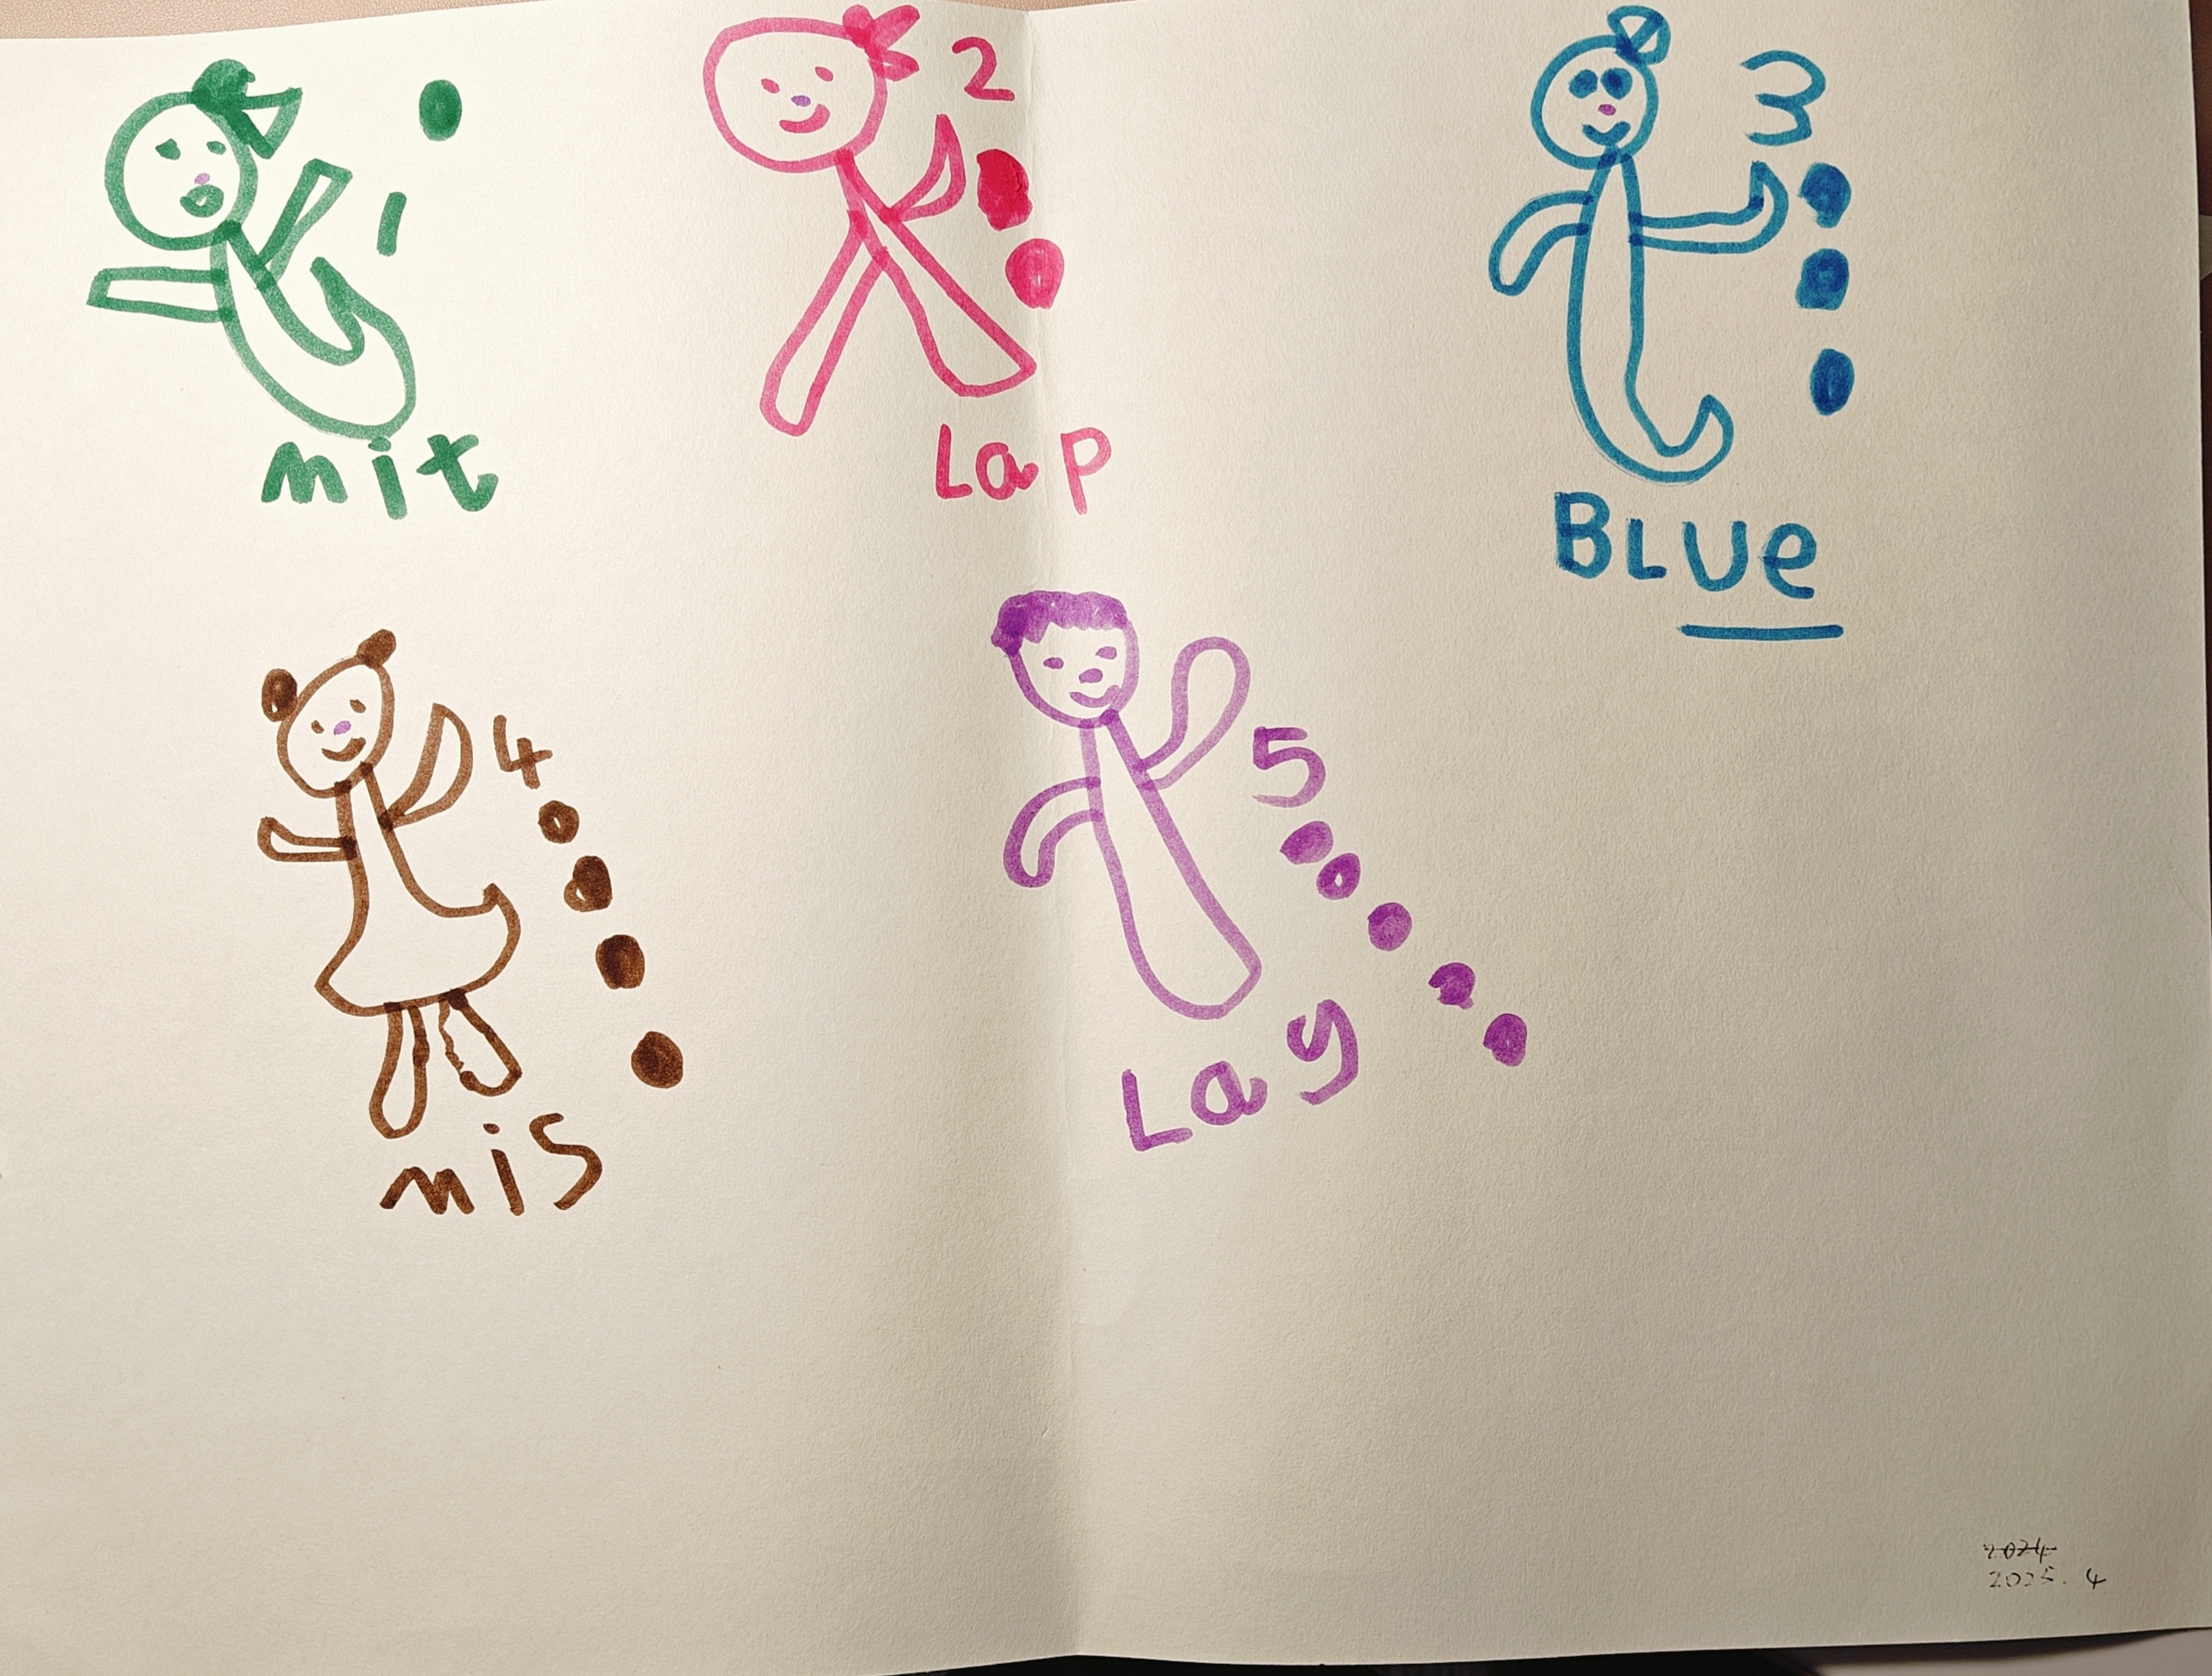 1
mit
2
Lap
3
BLUe
4
mis
5
Lay
2024
2025.4